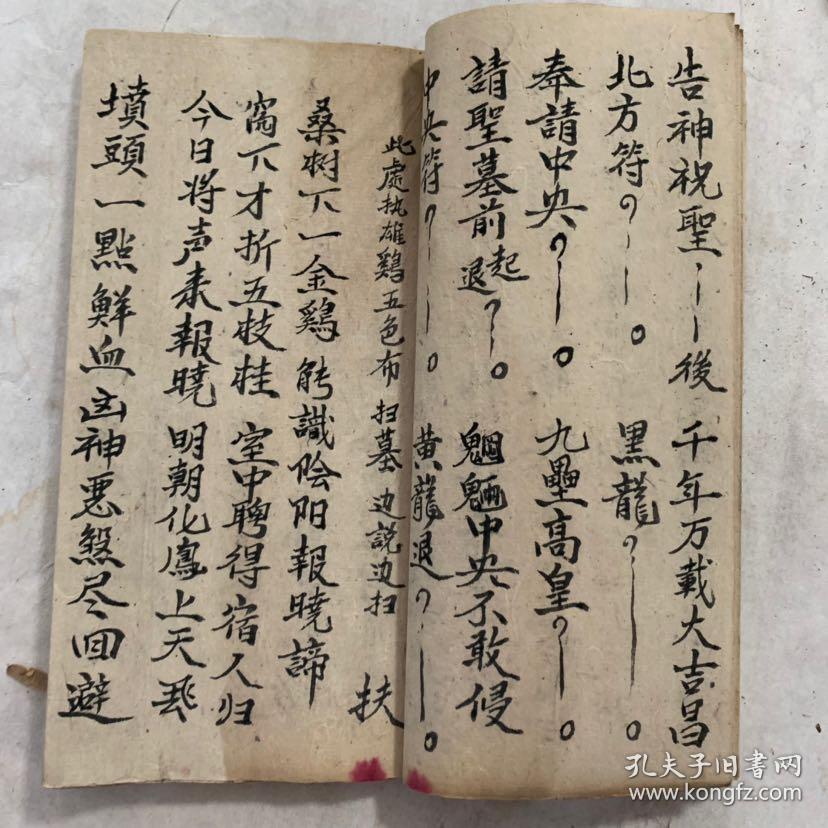 告神祝聖 後 千年万載大吉昌
北方符 黑龍
奉請中央 九壘高皇
請聖墓前起退 魍魎中央不敢侵
中央符 黄龍退
此處执雄鷄五色布扫墓边説边扫 扶
桑树下一金鷄 能識阴阳報曉諦
窩下才折五枝桂 室中聘得宿人归
今日将声来報曉 明朝化鳳上天飛
墳頭一點鮮血 凶神恶煞尽回避
孔夫子旧书网
www.kongfz.com